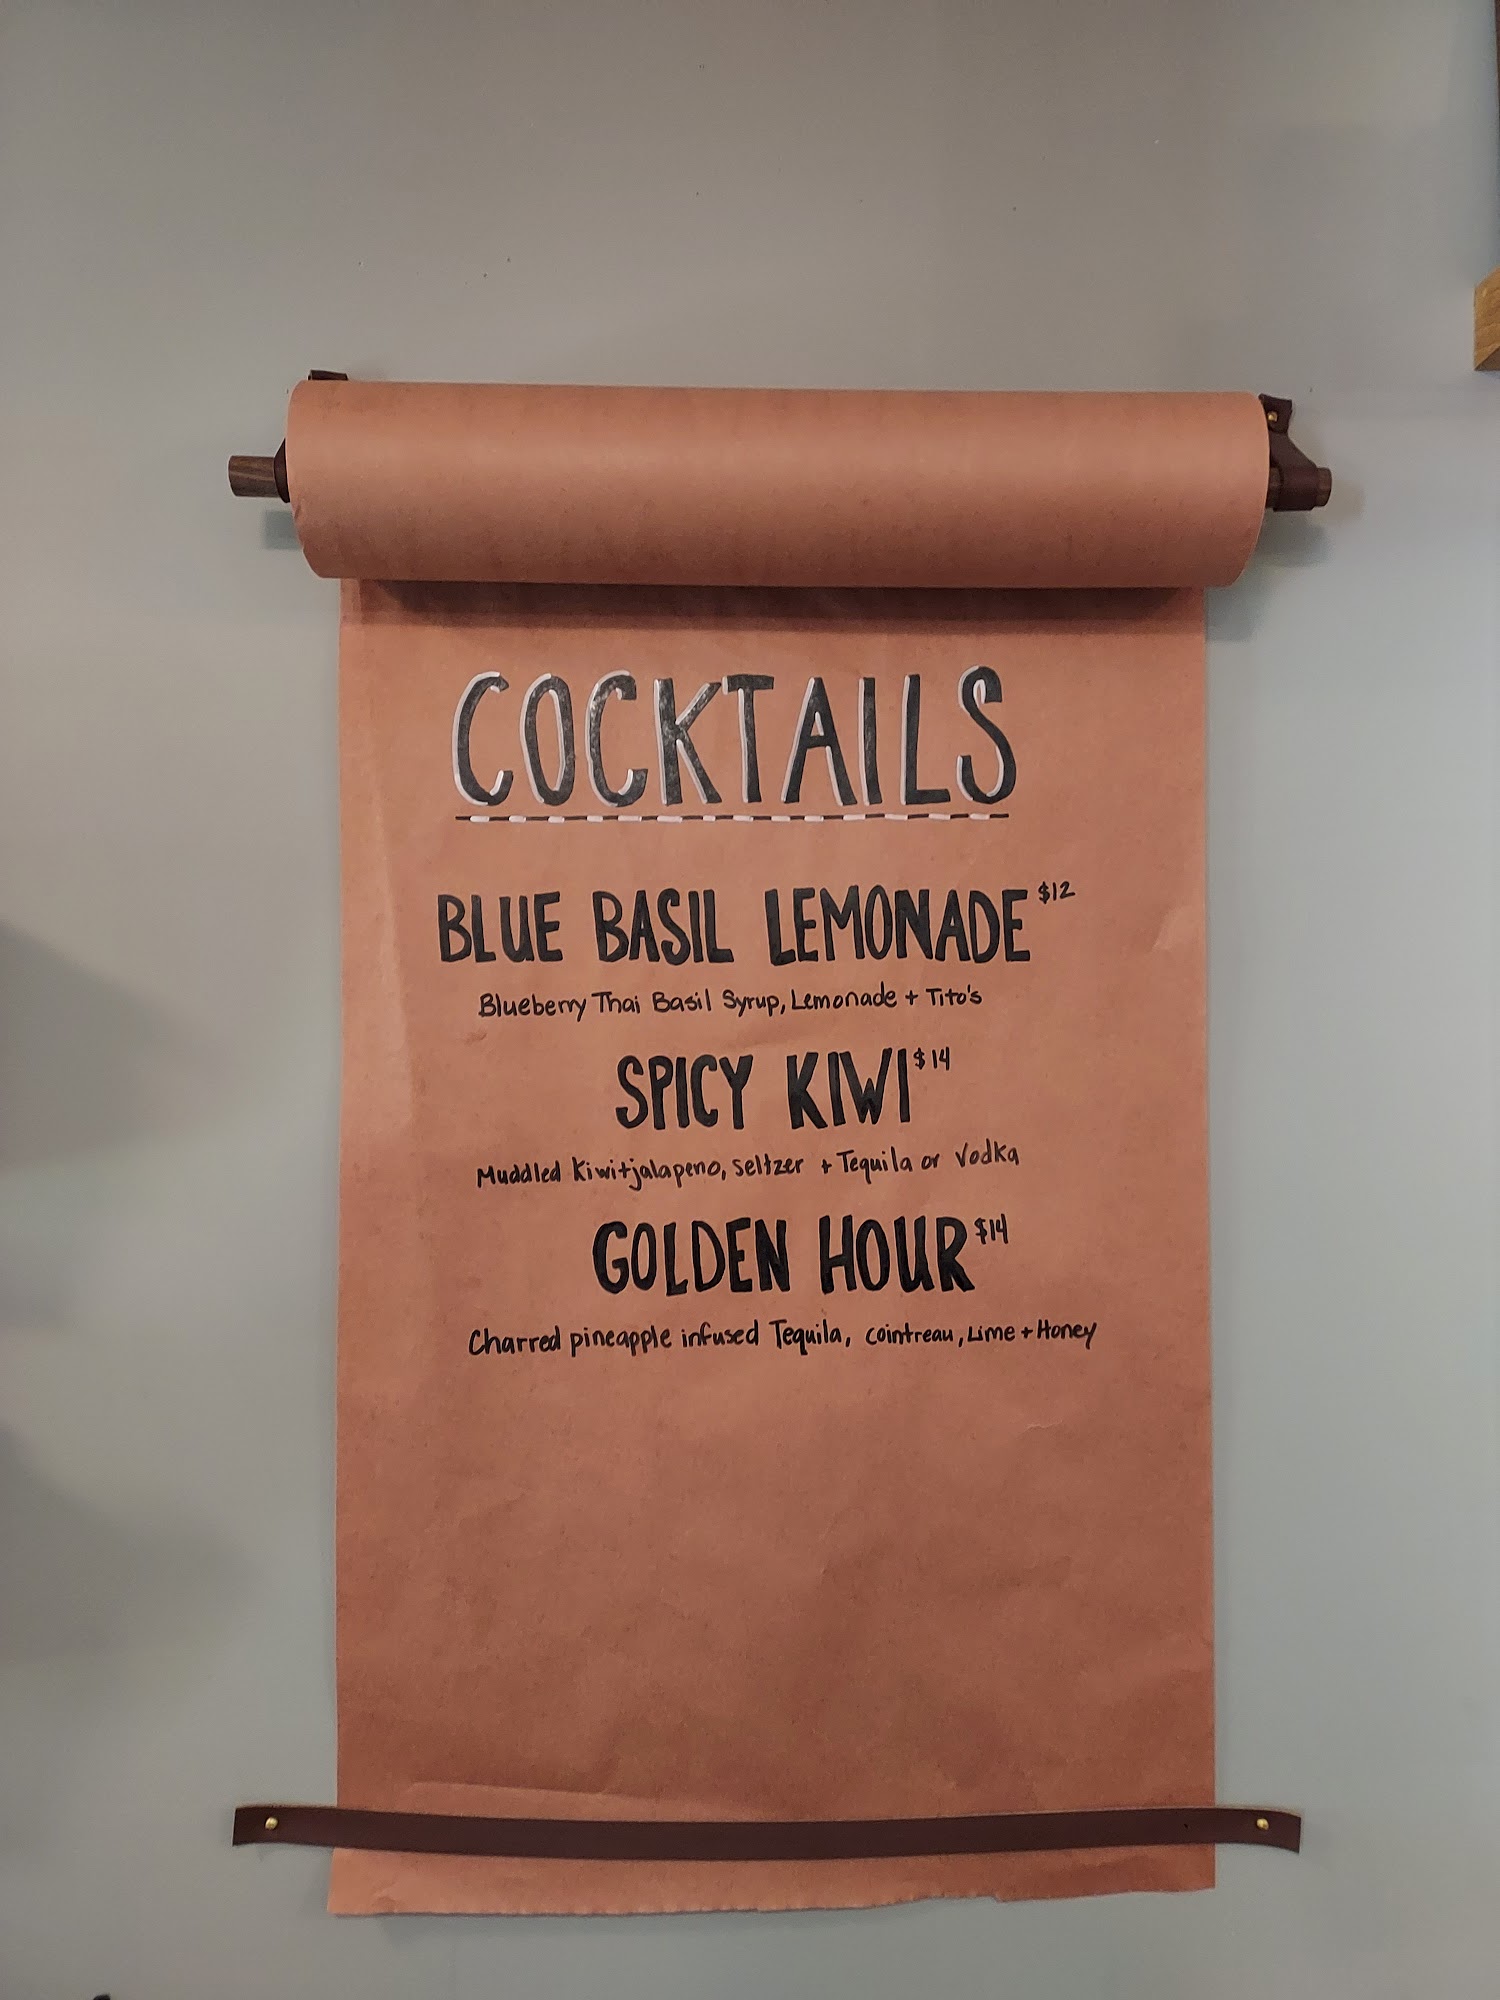 COCKTAILS
BLUE BASIL LEMONADE $12
Blueberry Thai Basil Syrup, Lemonade + Tito's
SPICY KIWI $14
Muddled Kiwi+jalapeno, seltzer + Tequila or Vodka
GOLDEN HOUR $14
Charred pineapple infused Tequila, cointreau, Lime + Honey